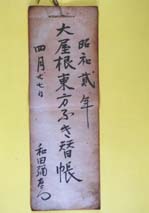 昭和弐年
大屋根東方ふき替帳
四月廿七日
和田